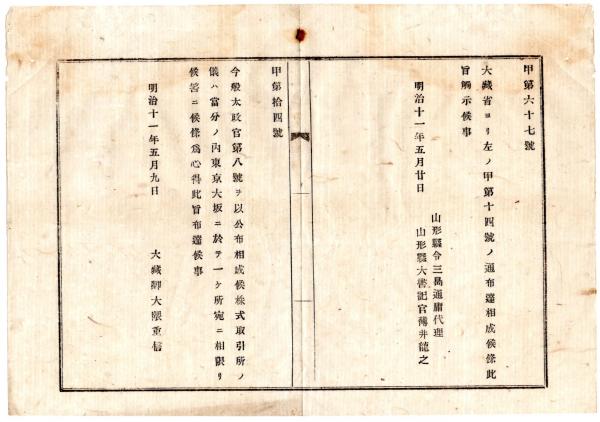 甲第六十七號
大藏省ヨリ左ノ甲第十四號ノ通布達相成候條此
旨觸示候事
明治十一年五月廿日
山形縣令三島通庸代理
山形縣大書記官薄井龍之
甲第拾四號
今般太政官第八號ヲ以公布相成候株式取引所ノ
儀ハ當分ノ內東京大坂ニ於テ一ケ所宛ニ相限リ
候筈ニ候條爲心得此旨布達候事
明治十一年五月九日
大藏卿大隈重信